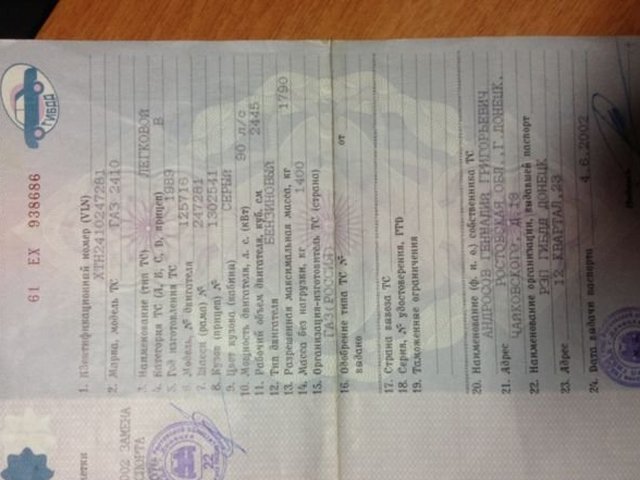 ГИБДД
61 ЕХ 938686
1. Идентификационный номер (VIN) XTH2410247281
2. Марка, модель ТС ГАЗ 2410
3. Наименование (тип ТС) ЛЕГКОВОЙ
4. Категория ТС (А, В, С, D, прицеп) В
5. Год изготовления ТС 1989
6. Модель, № двигателя 125716
7. Шасси (рама) № 247281
8. Кузов (прицеп) № 1302541
9. Цвет кузова (кабины) СЕРЫЙ
10. Мощность двигателя, л. с. (кВт) 90 л/с
11. Рабочий объем двигателя, куб. см 2445
12. Тип двигателя БЕНЗИНОВЫЙ
13. Разрешенная максимальная масса, кг 1790
14. Масса без нагрузки, кг 1400
15. Организация-изготовитель ТС (страна)
ГАЗ(РОССИЯ)
16. Одобрение типа ТС № от
выдано
17. Страна вывоза ТС
18. Серия, № удостоверения, ГТД
19. Таможенные ограничения
20. Наименование (ф. и. о.) собственника ТС
АНДРОСОВ ГЕННАДИЙ ГРИГОРЬЕВИЧ
21. Адрес РОСТОВСКАЯ ОБЛ., Г.ДОНЕЦК,
ЧАЙКОВСКОГО, Д.19
22. Наименование организации, выдавшей паспорт
РЭП ГИБДД ДОНЕЦК
23. Адрес 12 КВАРТАЛ,23
24. Дата выдачи паспорта 4.6.2002
метки
002 ЗАМЕНА
СПОРТА
22